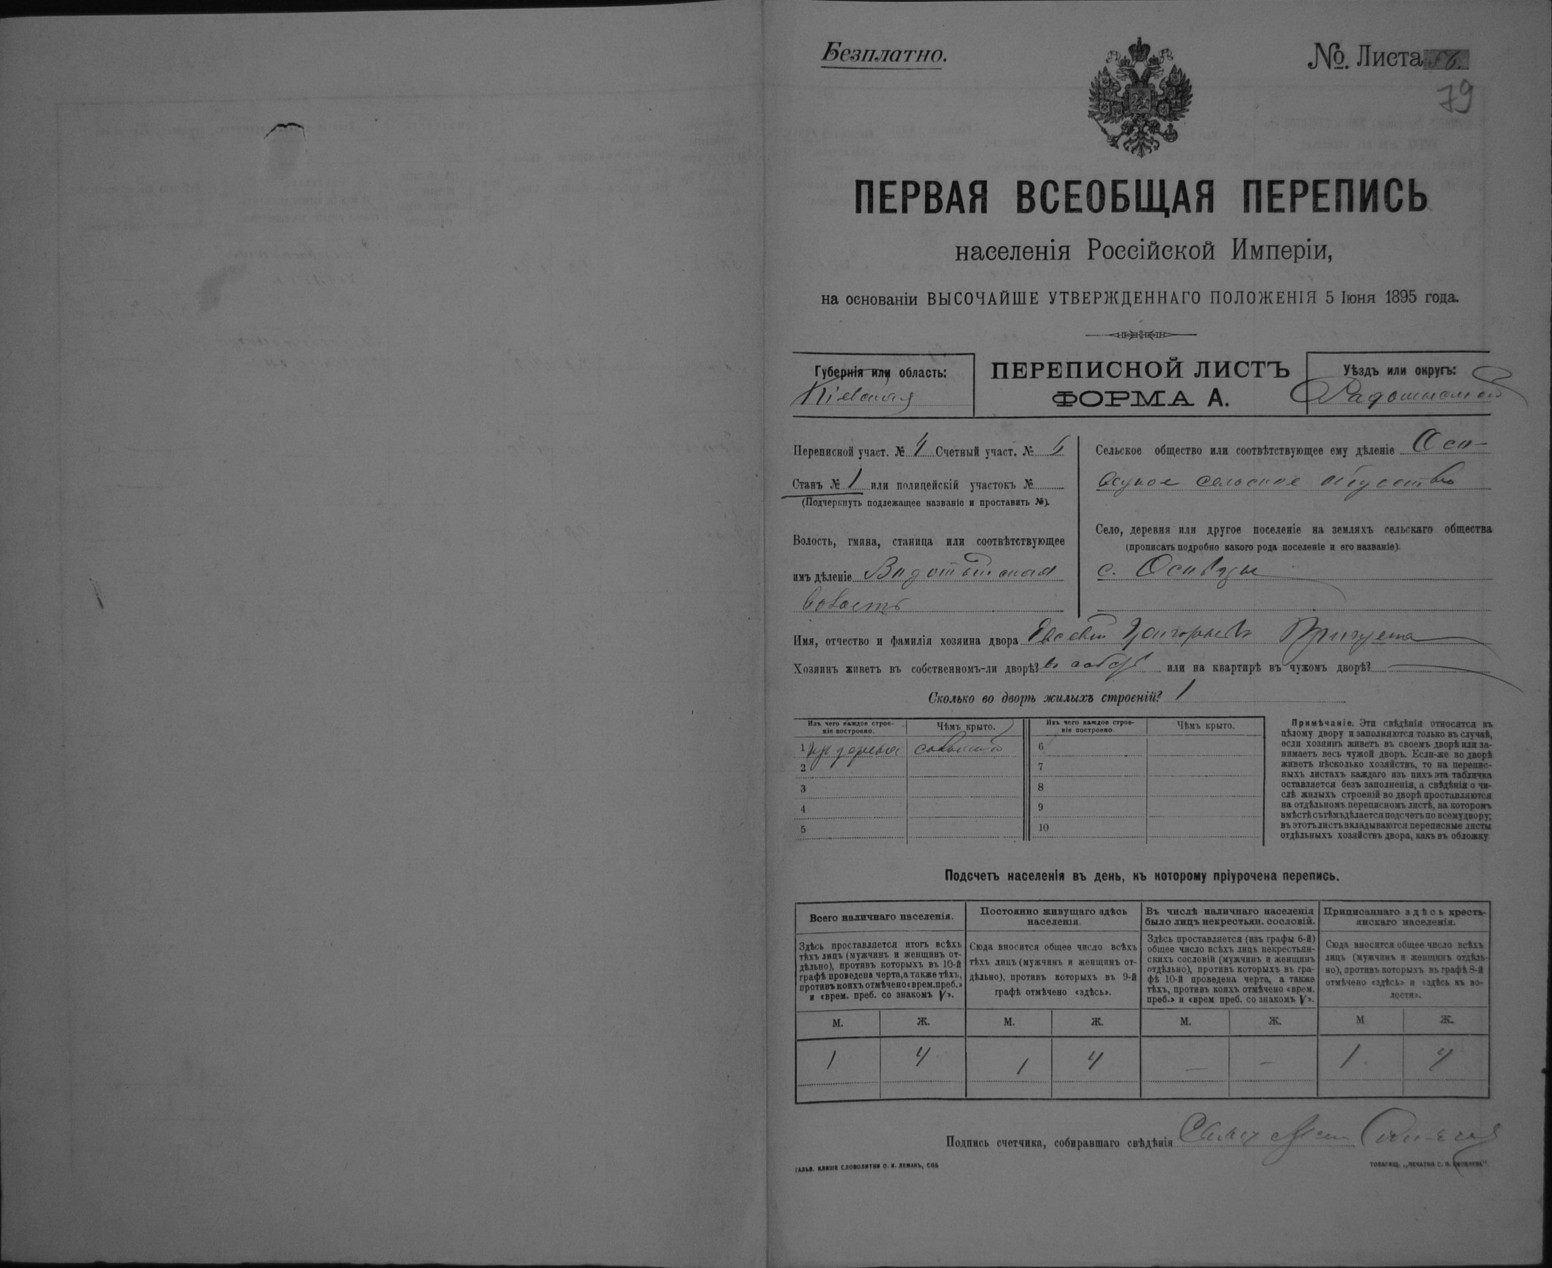 Безплатно.
№. Листа
79
ПЕРВАЯ ВСЕОБЩАЯ ПЕРЕПИСЬ
населенія Россійской Имперіи,
на основаніи ВЫСОЧАЙШЕ УТВЕРЖДЕННАГО ПОЛОЖЕНІЯ 5 Іюня 1895 года.
Губернія или область:
Кіевская
ПЕРЕПИСНОЙ ЛИСТЪ
ФОРМА А.
Уѣздъ или округъ:
Радомысльскій
Переписной участ. № 4 Счетный участ. №
Станъ № 1 или полицейскій участокъ №
(Подчеркнуть подлежащее названіе и проставить №).
Волость, гмина, станица или соотвѣтствующее
имъ дѣленіе
волость
Сельское общество или соотвѣтствующее ему дѣленіе
сельское общество
Село, деревня или другое поселеніе на земляхъ сельскаго общества
(прописать подробно какого рода поселеніе и его названіе).
с.
Имя, отчество и фамилія хозяина двора Евсевій Григорьевъ
Хозяинъ живетъ въ собственномъ-ли дворѣ? въ собст или на квартирѣ въ чужомъ дворѣ?
Сколько во дворѣ жилыхъ строеній? 1
Изъ чего каждое строе-
ніе построено.
Чѣмъ крыто.
Изъ чего каждое строе-
ніе построено.
Чѣмъ крыто.
1 изъ дерева соломою
2
3
4
5
6
7
8
9
10
Примѣчаніе. Эти свѣдѣнія относятся къ
цѣлому двору и заполняются только въ случаѣ,
если хозяинъ живетъ въ своемъ дворѣ или за-
нимаетъ весь чужой дворъ. Если-же во дворѣ
живетъ нѣсколько хозяйствъ, то на перепис-
ныхъ листахъ каждаго изъ нихъ эта табличка
оставляется безъ заполненія, а свѣдѣнія о чи-
слѣ жилыхъ строеній во дворѣ проставляются
на отдѣльномъ переписномъ листѣ, на которомъ
вмѣстѣ съ тѣмъ дѣлается подсчетъ по всему двору;
въ этотъ листъ вкладываются переписные листы
отдѣльныхъ хозяйствъ двора, какъ въ обложку.
Подсчетъ населенія въ день, къ которому пріурочена перепись.
Всего наличнаго населенія.
Здѣсь проставляется итогъ всѣхъ
тѣхъ лицъ (мужчинъ и женщинъ от-
дѣльно), противъ которыхъ въ 10-й
графѣ проведена черта, а также тѣхъ,
противъ коихъ отмѣчено «врем. преб.»
и «врем. преб. со знакомъ V».
Постоянно живущаго здѣсь
населенія.
Сюда вносится общее число всѣхъ
тѣхъ лицъ (мужчинъ и женщинъ от-
дѣльно), противъ которыхъ въ 9-й
графѣ отмѣчено «здѣсь».
Въ числѣ наличнаго населенія
было лицъ некрестьян. сословій.
Здѣсь проставляется (изъ графы 6-й)
общее число всѣхъ лицъ некрестьян-
скихъ сословій (мужчинъ и женщинъ
отдѣльно), противъ которыхъ въ гра-
фѣ 10-й проведена черта, а также
тѣхъ, противъ коихъ отмѣчено «врем.
преб.» и «врем преб. со знакомъ V».
Приписаннаго здѣсь кресть-
янскаго населенія.
Сюда вносится общее число всѣхъ
лицъ (мужчинъ и женщинъ отдѣль-
но), противъ которыхъ въ графѣ 8-й
отмѣчено «здѣсь» и «здѣсь въ во-
лости».
М. Ж. М. Ж. М. Ж. М Ж.
1 4 1 4 — — 1 4
Подпись счетчика, собиравшаго свѣдѣнія
ГАЛЬВ. КЛИШЕ СЛОВОЛИТНИ О. И. ЛЕМАНЪ, СПБ
ТОВАРИЩ. „ПЕЧАТНЯ С. П. ЯКОВЛЕВА“.